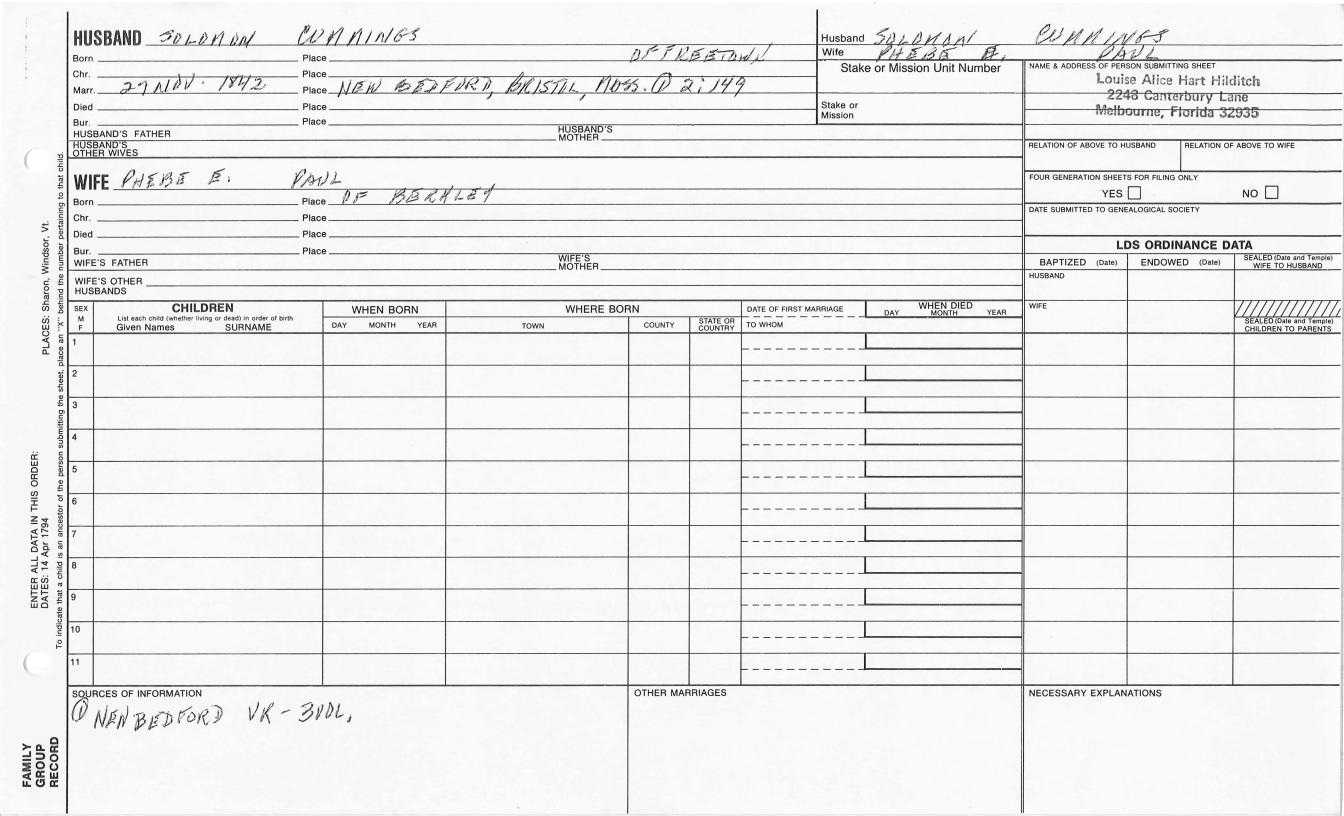 HUSBAND SOLOMON CUMMINGS
Born Place OF FREETOWN
Chr. Place
Marr. 27 NOV. 1842 Place NEW BEDFORD, BRISTOL, MASS. ① 2:149
Died Place
Bur. Place
HUSBAND'S FATHER HUSBAND'S MOTHER
HUSBAND'S OTHER WIVES
WIFE PHEBE E. PAUL
Born Place OF BERKLEY
Chr. Place
Died Place
Bur. Place
WIFE'S FATHER WIFE'S MOTHER
WIFE'S OTHER HUSBANDS
Husband SOLOMAN CUMMINGS
Wife PHEBE E. PAUL
Stake or Mission Unit Number
Stake or Mission
NAME & ADDRESS OF PERSON SUBMITTING SHEET
Louise Alice Hart Hilditch
2248 Canterbury Lane
Melbourne, Florida 32935
RELATION OF ABOVE TO HUSBAND RELATION OF ABOVE TO WIFE
FOUR GENERATION SHEETS FOR FILING ONLY
YES NO
DATE SUBMITTED TO GENEALOGICAL SOCIETY
LDS ORDINANCE DATA
BAPTIZED (Date) ENDOWED (Date) SEALED (Date and Temple) WIFE TO HUSBAND
HUSBAND
WIFE
SEALED (Date and Temple) CHILDREN TO PARENTS
SEX M F
CHILDREN
List each child (whether living or dead) in order of birth
Given Names SURNAME
WHEN BORN
DAY MONTH YEAR
WHERE BORN
TOWN COUNTY STATE OR COUNTRY
DATE OF FIRST MARRIAGE
TO WHOM
WHEN DIED
DAY MONTH YEAR
1
2
3
4
5
6
7
8
9
10
11
SOURCES OF INFORMATION
① NEW BEDFORD VR - 3VOL.
OTHER MARRIAGES
NECESSARY EXPLANATIONS
FAMILY GROUP RECORD
ENTER ALL DATA IN THIS ORDER:
DATES: 14 Apr 1794 PLACES: Sharon, Windsor, Vt.
To indicate that a child is an ancestor of the person submitting the sheet, place an "X" behind the number pertaining to that child.